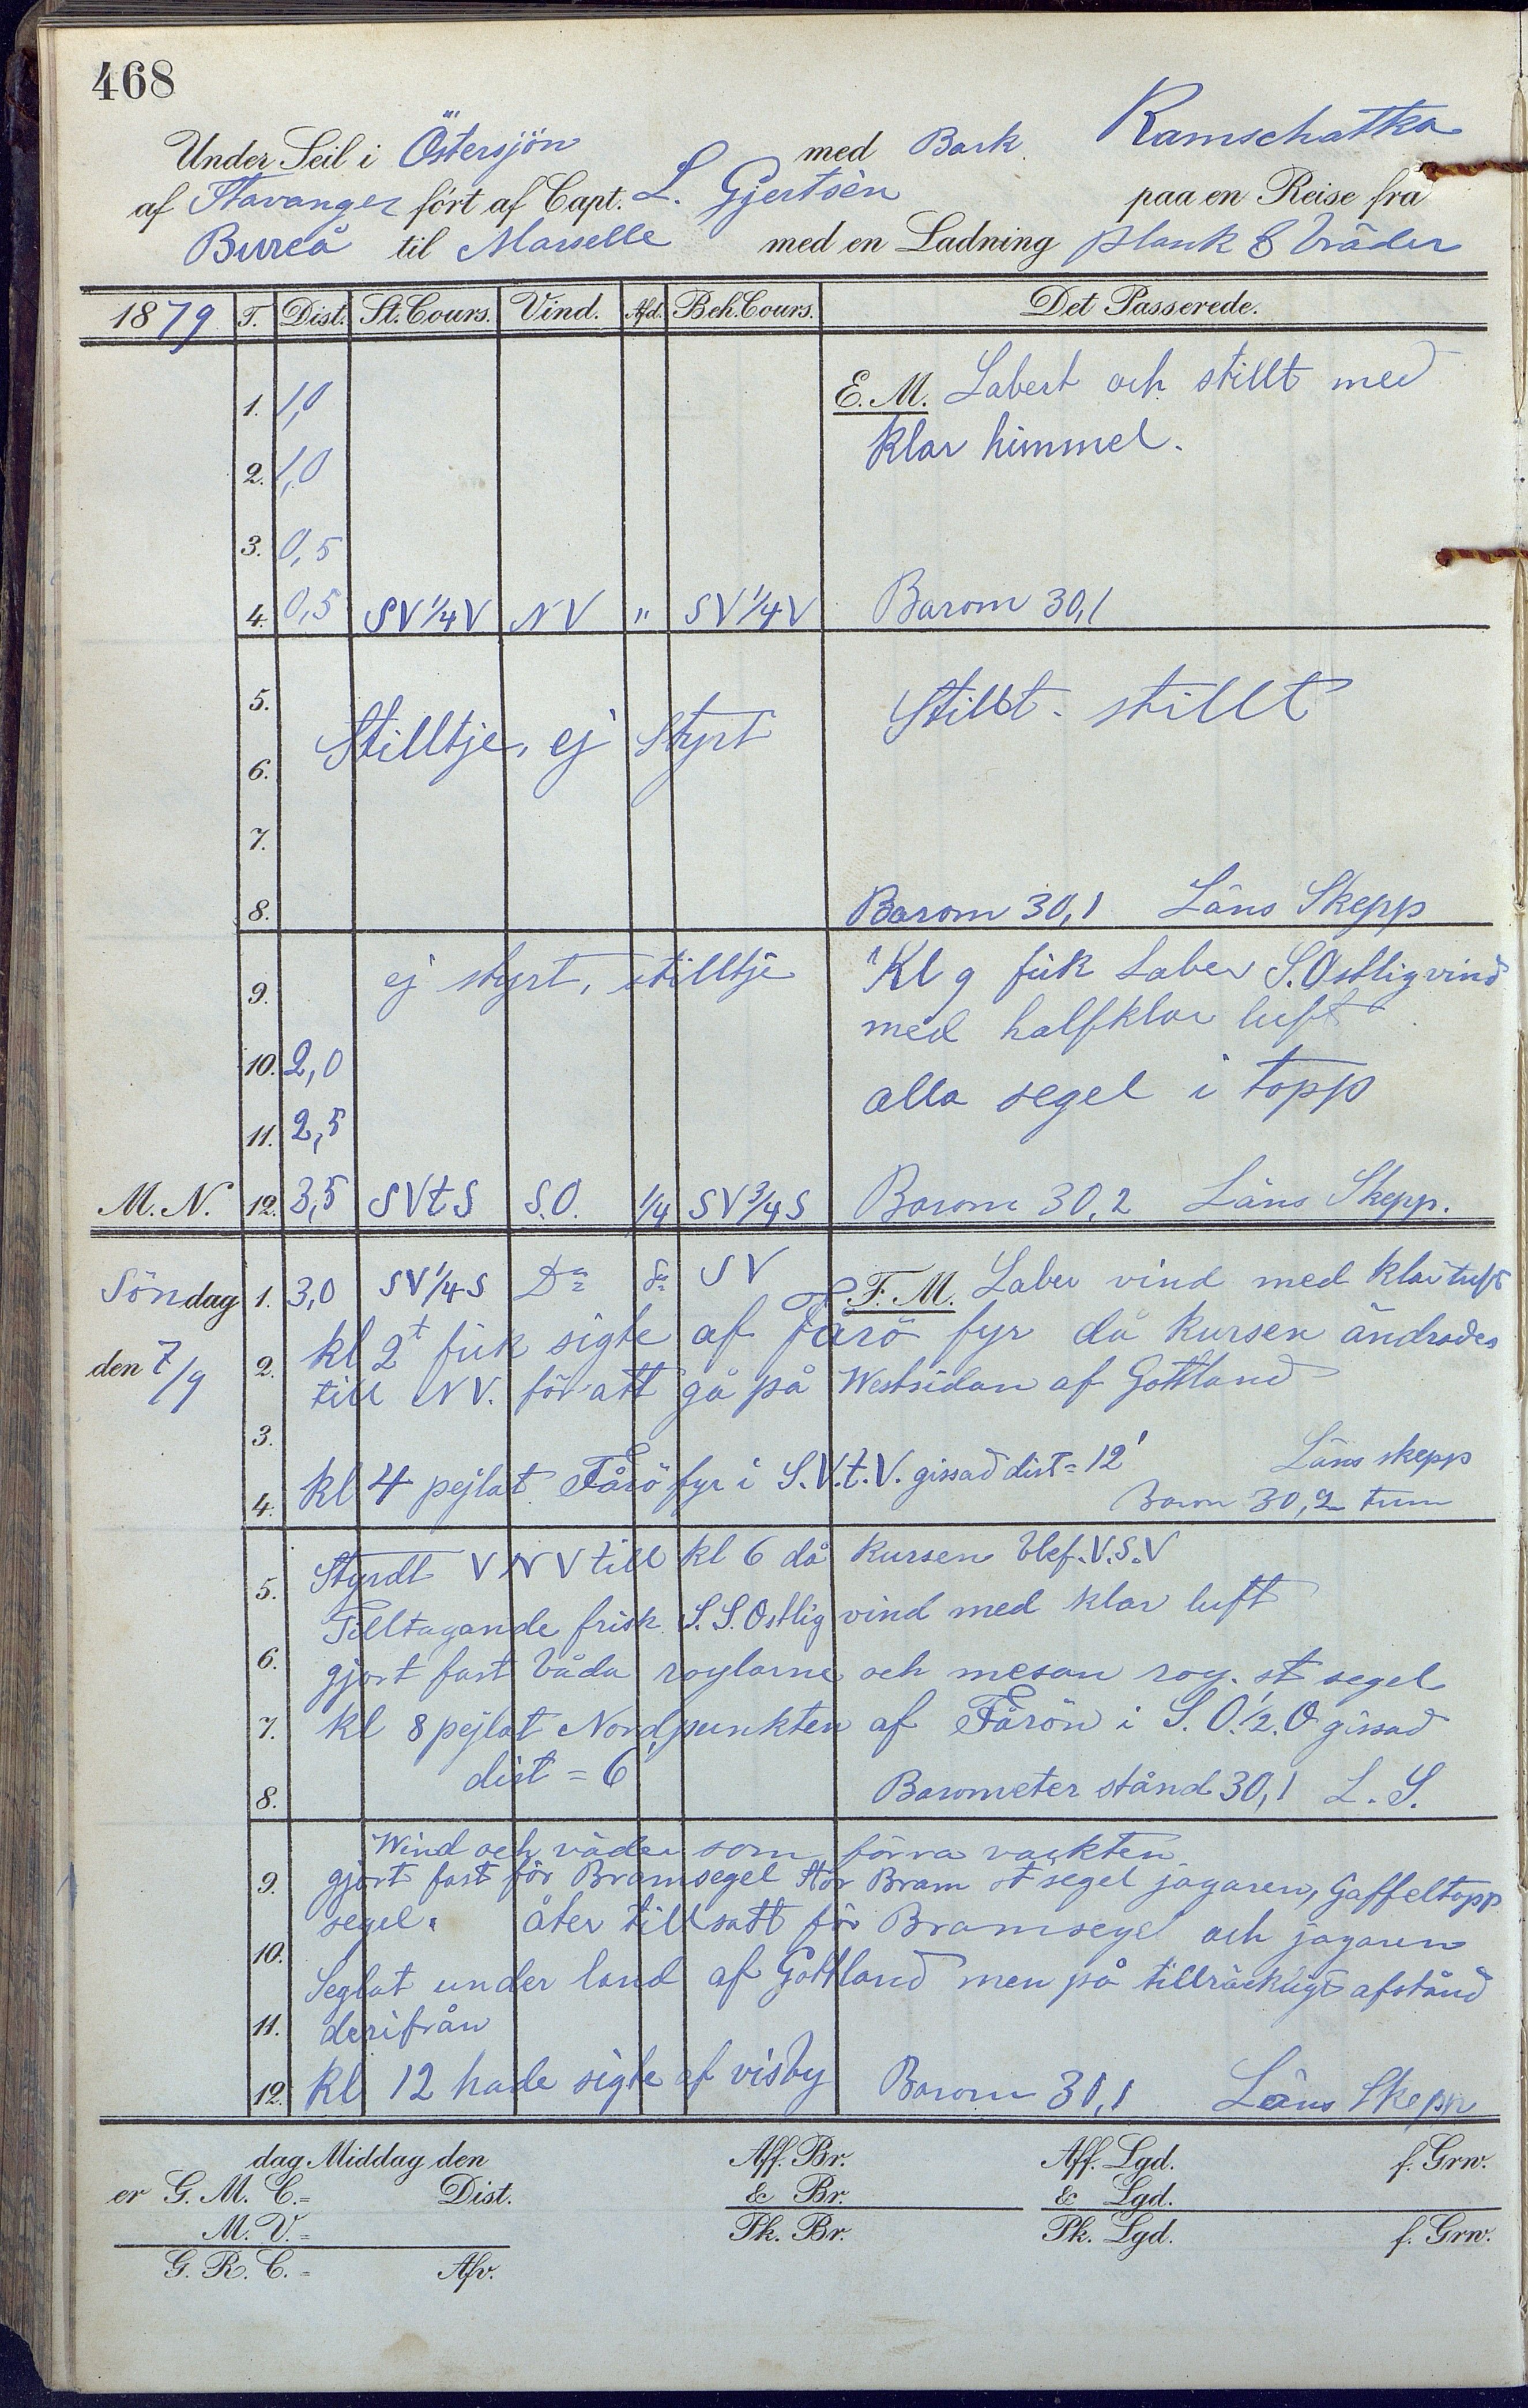 468
Under Seil i Östersjön med Bark Kamschatka
af Stavanger fört af Capt. L. Gjertsèn paa en Reise fra
Bureå til Marselle med en Ladning plank & bräder
1879 T. Dist. St. Cours. Vind. Afd. Beh. Cours. Det Passerede.
1. 1,0 E. M. Labert och stillt med
2. 1,0 klar himmel.
3. 0,5
4. 0,5 SV 1/4 V NV " SV 1/4 V Barom 30,1
5. Stillt. stillt
6. Stilltje, ej styrt
7.
8. Barom 30,1 Läns Skepp
9. ej styrt, stilltje Kl 9 fick Laber S. Ostlig vind
med halfklar luft
10. 2,0
alla segel i topp
11. 2,5
M. N. 12. 3,5 SVtS S.O. 1/4 SV 3/4 S Barom 30,2 Läns Skepp.
Söndag 1. 3,0 SV 1/4 S Do do SV F. M. Laber vind med klar luft
den 7/9 2. kl 2t fick sigte af Fårö fyr då kursen ändrades
till NV. för att gå på Westsidan af Gottland
3. Läns skepp
4. kl 4 pejlat Fårö fyr i S.V.t.V. gissad dist = 12'
Barom 30,2 tum
5. Styrdt VNV till kl 6 då kursen blef. V.S.V
Tilltagande frisk S.S. Ostlig vind med klar luft
6. gjort fast båda roylarne och mesan roy. st segel
7. kl 8 pejlat Nordpunkten af Fårön i S.O. 1/2. O gissad
dist = 6'
8. Barometer stånd 30,1 L. S.
Wind och väder som förra vackten
9. gjort fast för Bramsegel Stor Bram st segel jagaren, Gaffeltopp
segel. åter tillsatt för Bramsegel och jagaren
10.
Seglat under land af Gottland men på tillräckligt afstånd
11. derifrån
12. kl 12 hade sigte af visby Barom 30,1 Läns Skepp
dag Middag den Aff. Br. Aff. Lgd. f. Grw.
er G. M. C. = Dist. & Br. & Lgd.
M. V. = Pk. Br. Pk. Lgd. f. Grw.
G. R. C. = Afv.